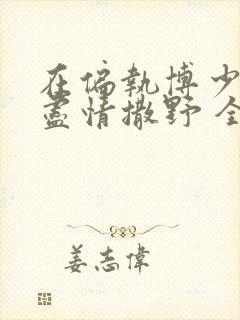 在偏執博少
盡情撒野 全
姜志偉